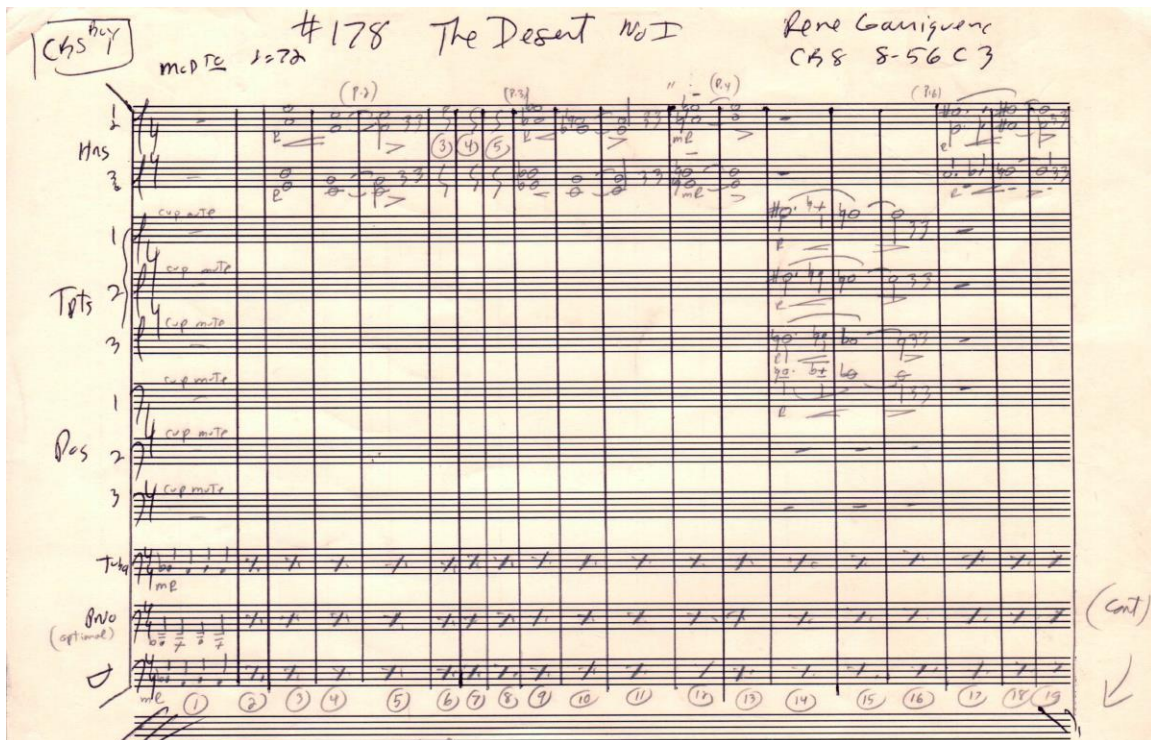 CBS Box 1
#178 The Desert No I Rene Garriguenc
CBS 8-56 C3
modto ♩=72
(P.2) (P.3) (P.4) (P.6)
Hns
1
2
3
mp
3 4 5
Tpts
1 cup mute
2 cup mute
3 cup mute
Pos
1 cup mute
2 cup mute
3 cup mute
Tuba
Pno
(optional)
(cont)
1 2 3 4 5 6 7 8 9 10 11 12 13 14 15 16 17 18 19